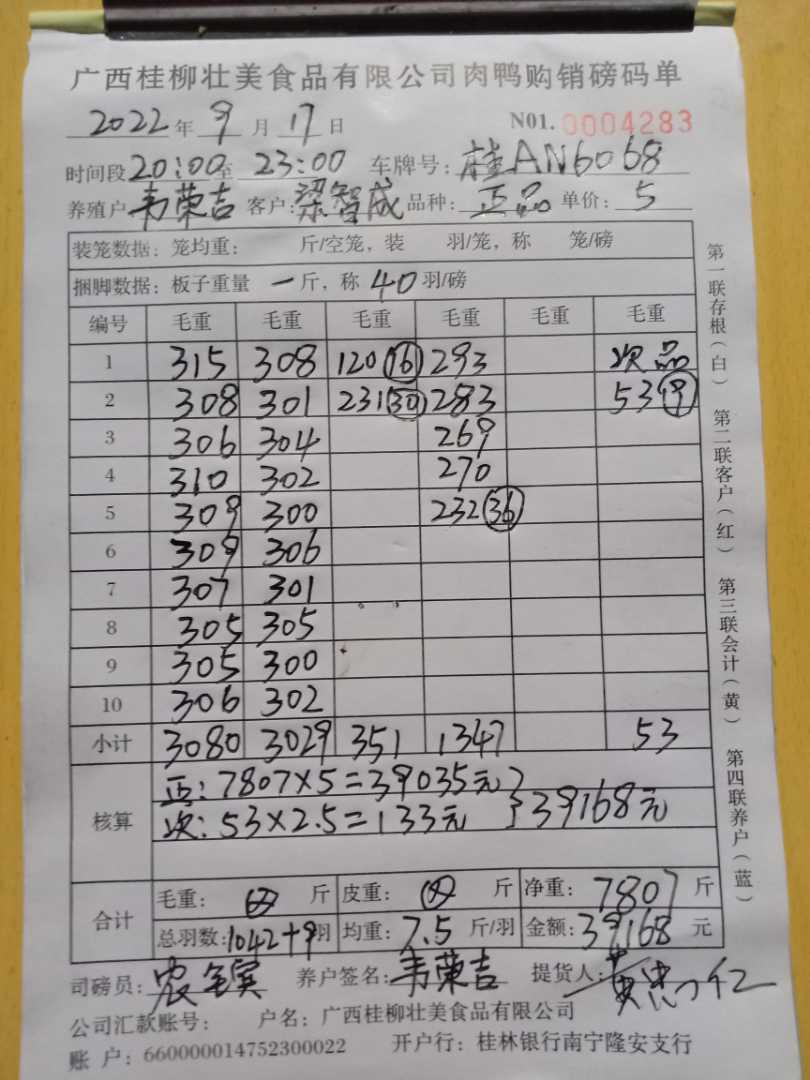 广西桂柳壮美食品有限公司肉鸭购销磅码单
2022年9月17日 N01.0004283
时间段20:00至23:00 车牌号:桂AN6068
养殖户韦荣吉 客户:梁智成 品种:正品 单价:5
装笼数据:笼均重: 斤/空笼,装 羽/笼,称 笼/磅
捆脚数据:板子重量 一斤,称40羽/磅
编号 毛重 毛重 毛重 毛重 毛重 毛重
1 315 308 120(16) 293 次品
2 308 301 231(30) 283 53(9)
3 306 304 269
4 310 302 270
5 309 300 232(36)
6 309 306
7 307 301
8 305 305
9 305 300
10 306 302
小计 3080 3029 351 1347 53
核算
正:7807×5=39035元
次:53×2.5=133元 }39168元
合计
毛重: 斤 皮重: 斤 净重:7807斤
总羽数:1042+9羽 均重:7.5斤/羽 金额:39168元
司磅员: 养户签名:韦荣吉 提货人:
公司汇款账号: 户名:广西桂柳壮美食品有限公司
账 户:660000014752300022 开户行:桂林银行南宁隆安支行
第一联存根(白) 第二联客户(红) 第三联会计(黄) 第四联养户(蓝)